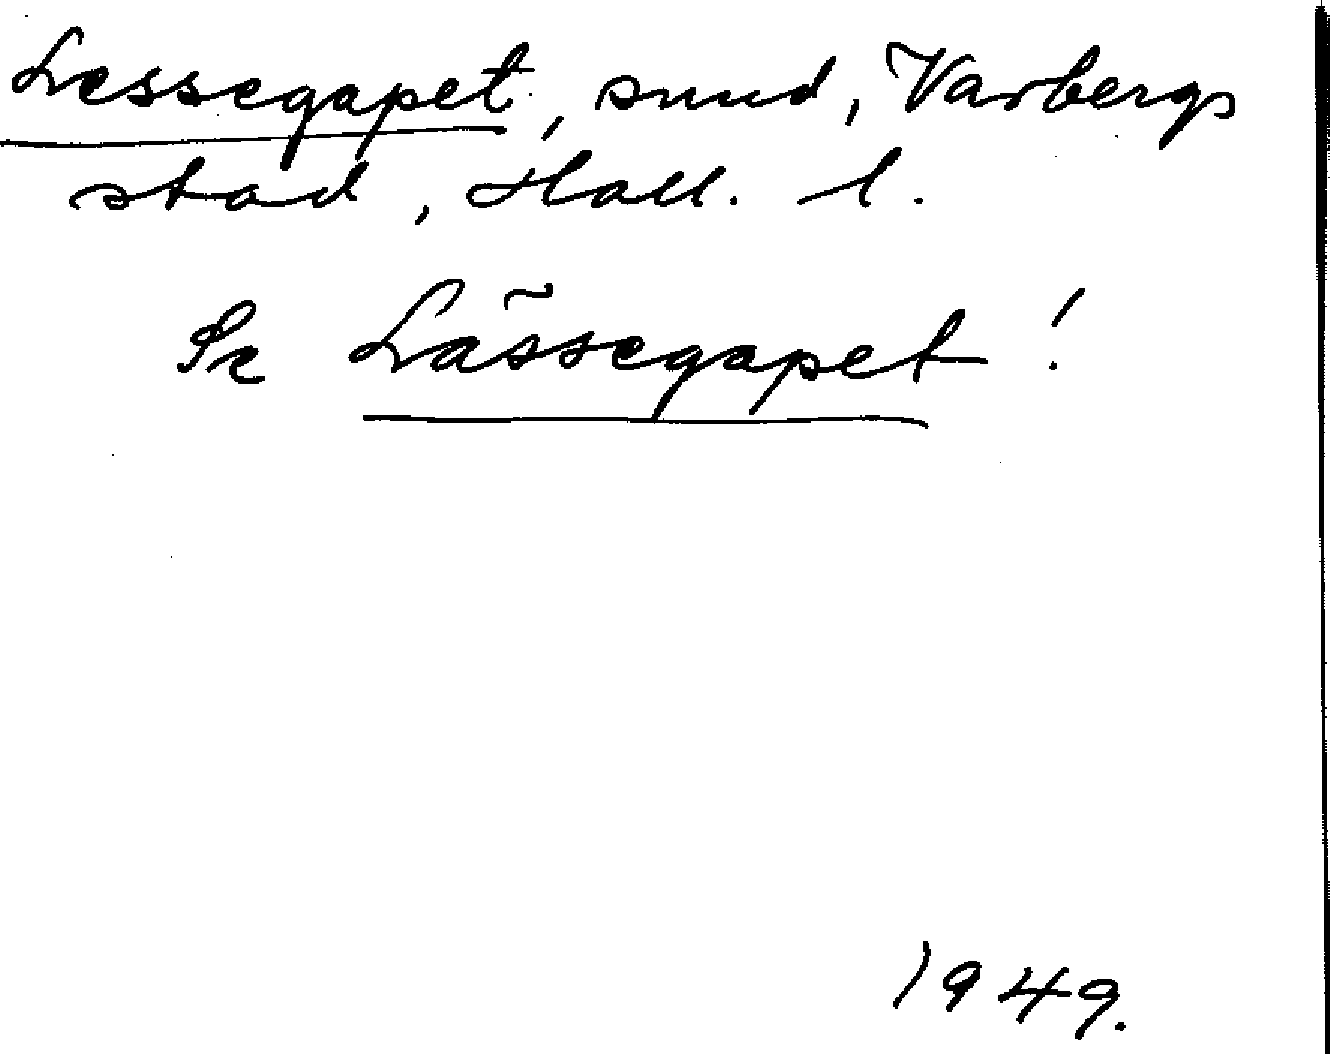 Lessegapet, sund, Varbergs
stad, Hall. l.
Se Lässegapet!
1949.